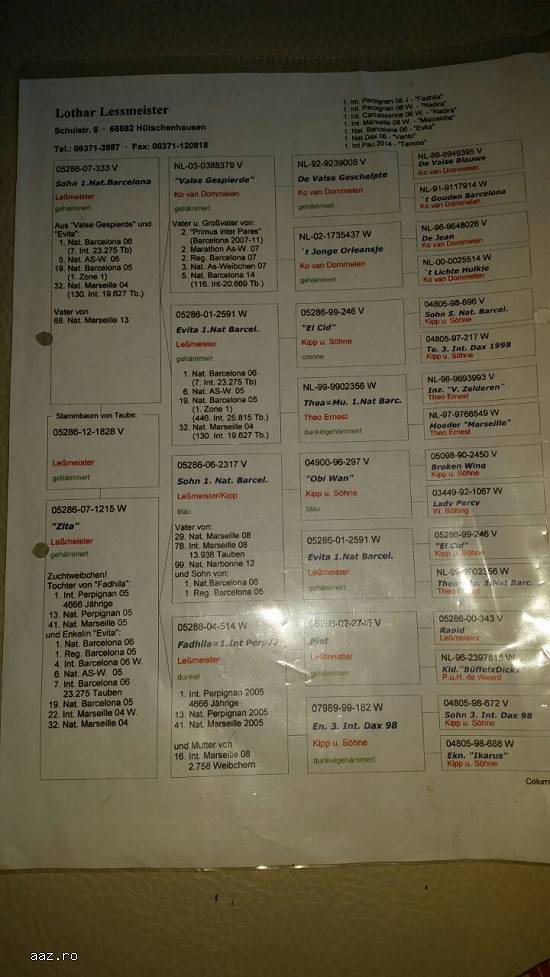 Lothar Lessmeister
Schulstr. 6 · 66882 Hütschenhausen
Tel.: 06371-3987 · Fax: 06371-120818
1. Int. Perpignan 05 J - "Fadhila"
1. Int. Perpignan 06 W. - "Nadira"
1. Int. Carcassonne 06 W. - "Nadira"
1. Int. Marseille 06 W. - "Mistralche"
1. Nat. Barcelona 06 - "Evita"
1. Nat.Dax 06 - "Vento"
1. Int.Pau 2014 - "Tamino"
05286-07-333 V
Sohn 1.Nat.Barcelona
Leßmeister
gehämmert
Aus "Valse Gespierde" und
"Evita":
1. Nat. Barcelona 06
(7. Int. 23.275 Tb)
6. Nat. AS-W. 05
19. Nat. Barcelona 05
(1. Zone 1)
32. Nat. Marseille 04
(130. Int. 19.627 Tb.)
Vater von
88. Nat. Marseille 13
Stammbaum von Taube:
05286-12-1828 V
Leßmeister
gehämmert
05286-07-1215 W
"Zita"
Leßmeister
gehämmert
Zuchtweibchen!
Tochter von "Fadhila":
1. Int. Perpignan 05
4666 Jährige
13. Nat. Perpignan 05
41. Nat. Marseille 05
und Enkelin "Evita":
1. Nat. Barcelona 06
1. Reg. Barcelona 05
4. Int. Barcelona 06 W.
6. Nat. AS-W. 05
7. Int. Barcelona 06
23.275 Tauben
19. Nat. Barcelona 05
22. Int. Marseille 04 W.
32. Nat. Marseille 04
NL-03-0388379 V
"Valse Gespierde"
Ko van Dommelen
gehämmert
Vater u. Großvater von:
2. "Primus inter Pares"
(Barcelona 2007-11)
2. Marathon As-W. 07
2. Reg. Barcelona 07
3. Nat. As-Weibchen 07
5. Nat. Barcelona 14
(116. Int-20.669 Tb.)
05286-01-2591 W
Evita 1.Nat Barcel.
Leßmeister
gehämmert
1. Nat. Barcelona 06
(7. Int. 23.275 Tb)
6. Nat. AS-W. 05
19. Nat. Barcelona 05
(1. Zone 1)
(446. Int. 25.815 Tb.)
32. Nat. Marseille 04
(130. Int. 19.627 Tb.)
05286-06-2317 V
Sohn 1. Nat. Barcel.
Leßmeister/Kipp
blau
Vater von:
29. Nat. Marseille 08
78. Int. Marseille 08
13.938 Tauben
99. Nat. Narbonne 12
und Sohn von:
1. Nat.Barcelona 06
1. Reg. Barcelona 05
05286-04-514 W
Fadhila=1.Int Perp/J
Leßmeister
dunkel
1. Int. Perpignan 2005
4666 Jährige
13. Nat. Perpignan 2005
41. Nat. Marseille 2005
und Mutter von
16. Int. Marseille 08
2.758 Weibchen
NL-92-9239008 V
De Valse Geschelpte
Ko van Dommelen
gehämmert
NL-02-1735437 W
´t Jonge Orleansje
Ko van Dommelen
gehämmert
05286-99-246 V
"El Cid"
Kipp u. Söhne
creone
NL-99-9902356 W
Thea=Mu. 1.Nat Barc.
Theo Ernest
dunkelgehämmert
04900-96-297 V
"Obi Wan"
Kipp u. Söhne
blau
05286-01-2591 W
Evita 1.Nat Barcel.
Leßmeister
gehämmert
05286-02-2745 V
Piet
Leßmeister
gehämmert
07989-99-182 W
En. 3. Int. Dax 98
Kipp u. Söhne
dunkelgehämmert
NL-89-8949395 V
De Valse Blauwe
Ko van Dommelen
NL-91-9117914 W
´t Gouden Barcelona
Ko van Dommelen
NL-96-9648026 V
De Jean
Ko van Dommelen
NL-00-0025514 W
´t Lichte Hulkie
Ko van Dommelen
04805-98-696 V
Sohn 5. Nat. Barcel.
Kipp u. Söhne
04805-97-217 W
To. 3. Int. Dax 1998
Kipp u. Söhne
NL-98-9693993 V
Inz. "V. Zelderen"
Theo Ernest
NL-97-9766549 W
Moeder "Marseille"
Theo Ernest
05098-90-2450 V
Broken Wing
Kipp u. Söhne
03449-92-1067 W
Lady Percy
W. Bölting
05286-99-246 V
"El Cid"
Kipp u. Söhne
NL-99-9902356 W
Thea=Mu. 1.Nat Barc.
Theo Ernest
05286-00-343 V
Rapid
Leßmeister
NL-96-2397815 W
Kld."BüffelxDicky
P.u.H. de Weerd
04805-98-672 V
Sohn 3. Int. Dax 98
Kipp u. Söhne
04805-98-688 W
Ekn. "Ikarus"
Kipp u. Söhne
Colum
aaz.ro